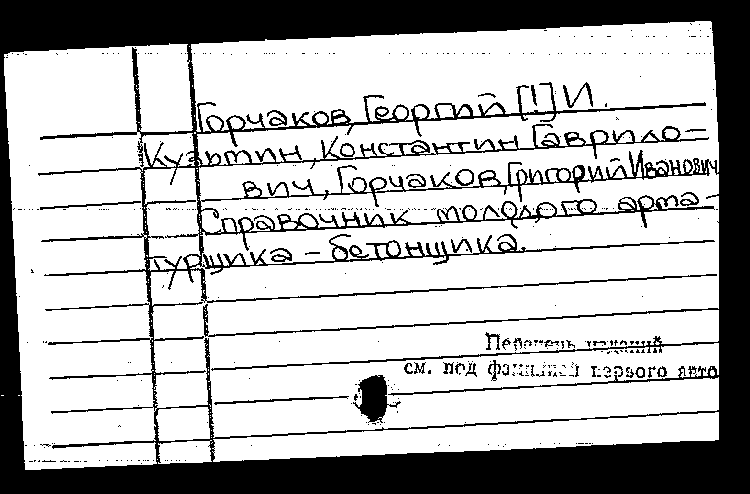 Горчаков, Георгий [!] И.
Кузьмин, Константин Гаврило=
вич, Горчаков, Григорий Иванович
Справочник молодого арма-
турщика - бетонщика.
Перечень изданий
см. под фамилией первого авто